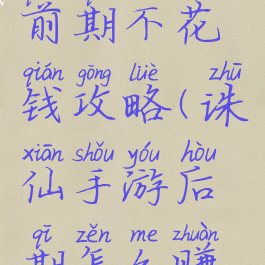 前期不花
qián gōng lüè zhū
钱攻略(诛
xiān shǒu yóu hòu
仙手游后
qī zěn me zhuàn
期怎么赚